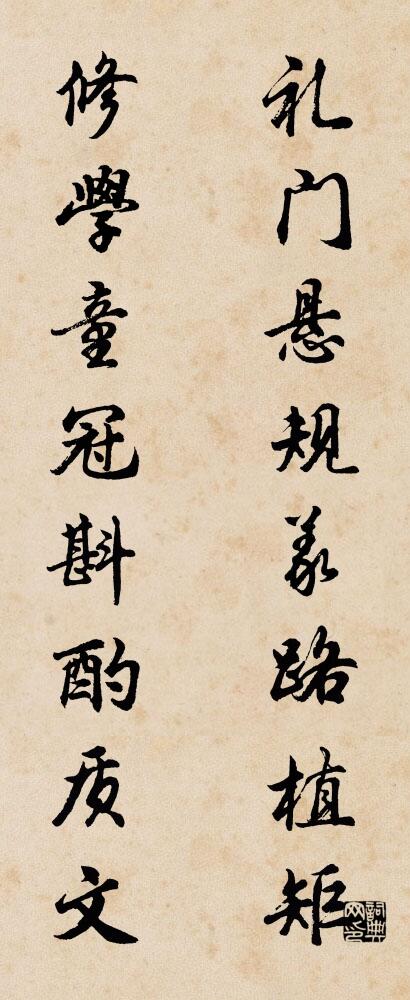 礼门悬规义路植矩
修學童冠斟酌质文
詞典网印